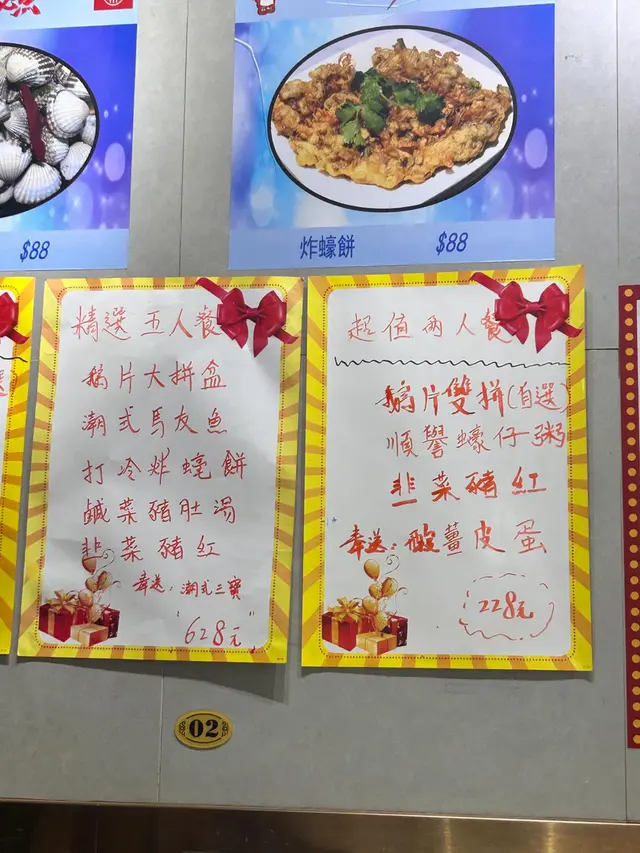 $88
炸蠔餅 $88
精選五人餐
鵝片大拼盆
潮式馬友魚
打冷炸蠔餅
鹹菜豬肚湯
韭菜豬紅
奉送：潮式三寶
"628元"
超值兩人餐
鵝片雙拼(自選)
順譽蠔仔粥
韭菜豬紅
奉送：酸薑皮蛋
228元
02